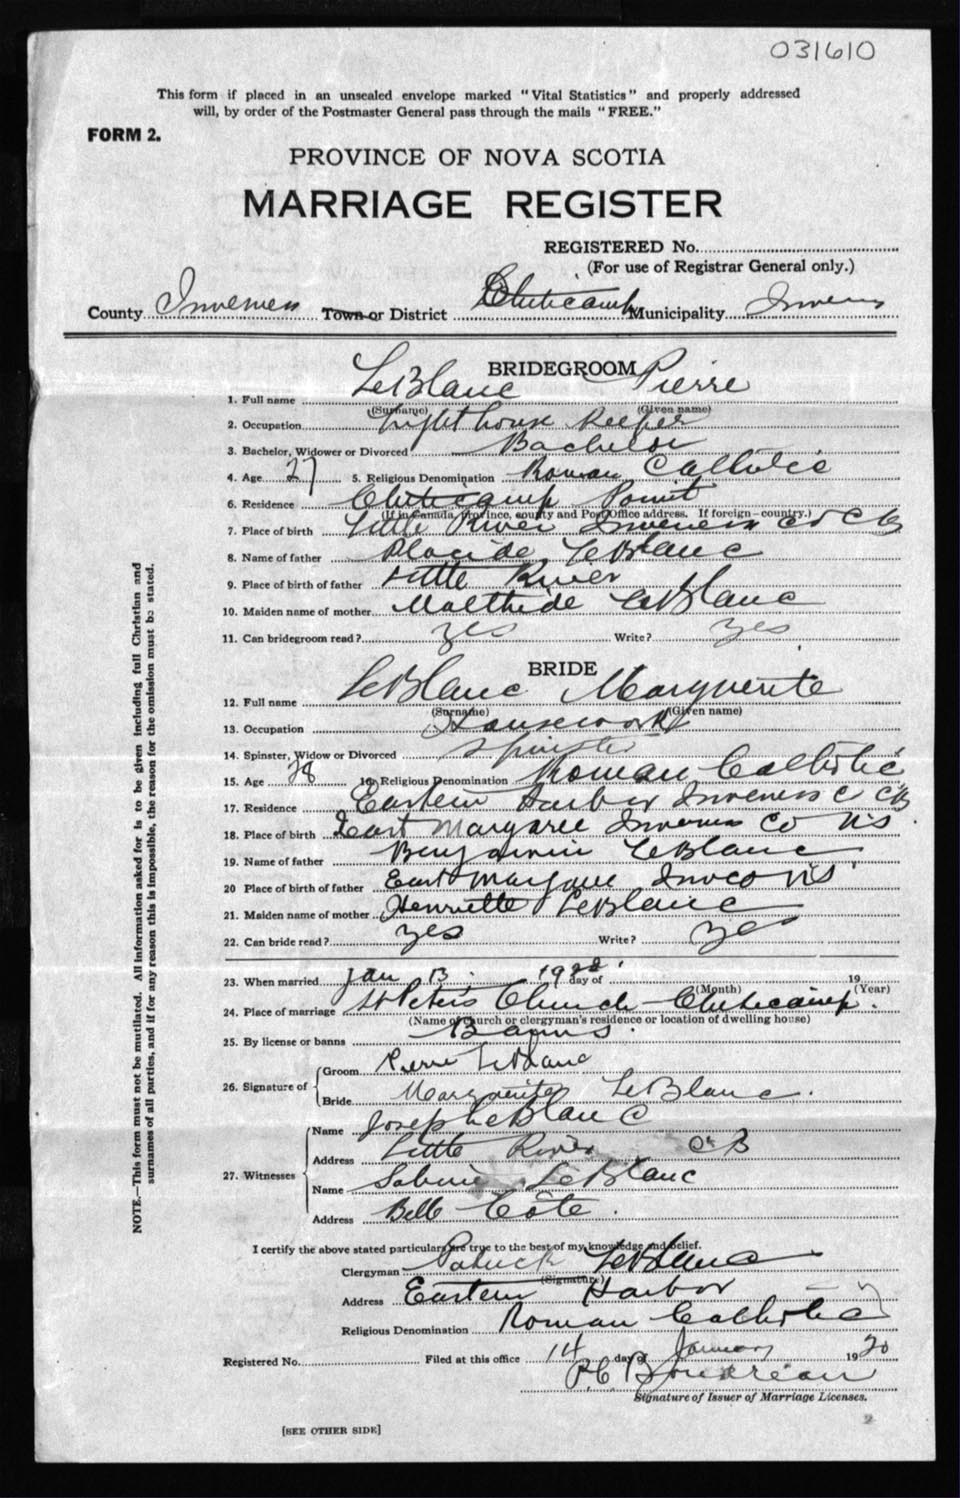 031610
This form if placed in an unsealed envelope marked "Vital Statistics" and properly addressed
will, by order of the Postmaster General pass through the mails "FREE."
FORM 2.
PROVINCE OF NOVA SCOTIA
MARRIAGE REGISTER
REGISTERED No.
(For use of Registrar General only.)
County Inverness Town or District Cheticamp Municipality Inverness
BRIDEGROOM
1. Full name LeBlanc Pierre
(Surname) (Given name)
2. Occupation Light house Keeper
3. Bachelor, Widower or Divorced Bachelor
4. Age 27 5. Religious Denomination Roman Catholic
6. Residence Cheticamp Point
(If in Canada, province, county and Post Office address. If foreign—country.)
7. Place of birth Little River Inverness Co CB
8. Name of father Placide LeBlanc
9. Place of birth of father Little River
10. Maiden name of mother Malthide LeBlanc
11. Can bridegroom read? yes Write? yes
BRIDE
12. Full name LeBlanc Marguerite
(Surname) (Given name)
13. Occupation Housework
14. Spinster, Widow or Divorced Spinster
15. Age 28 16. Religious Denomination Roman Catholic
17. Residence Eastern Harbor Inverness C CB
18. Place of birth East Margaree Inverness Co NS
19. Name of father Benjamin LeBlanc
20 Place of birth of father East Margaree Inv Co NS
21. Maiden name of mother Henriette LeBlanc
22. Can bride read? yes Write? yes
23. When married Jan 13 day of 19
(Month) (Year)
24. Place of marriage St Peter's Church Cheticamp.
(Name of church or clergyman's residence or location of dwelling house)
25. By license or banns Banns.
26. Signature of Groom Pierre LeBlanc
Bride Marguerite LeBlanc.
27. Witnesses Name Joseph LeBlanc
Address Little River CB
Name Sabine LeBlanc
Address Bell Côte.
I certify the above stated particulars are true to the best of my knowledge and belief.
Clergyman Patrick LeBlanc
(Signature)
Address Eastern Harbor
Religious Denomination Roman Catholic
Registered No. Filed at this office 14 day of January 1920
P.C. Boudreau
Signature of Issuer of Marriage Licenses.
[SEE OTHER SIDE]
NOTE.—This form must not be mutilated. All information asked for is to be given including full Christian and
surnames of all parties, and if for any reason this is impossible, the reason for the omission must be stated.